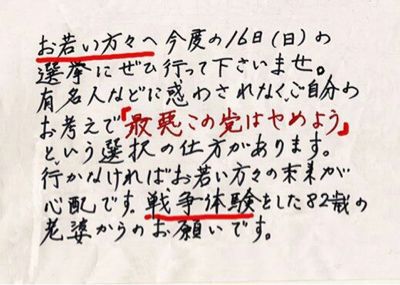 お若い方々へ今度の16日(日)の
選挙にぜひ行って下さいませ。
有名人などに惑わされなく、ご自分の
お考えで「最悪この党はやめよう」
という選択の仕方があります。
行かなければお若い方々の末来が
心配です。戦争体験をした82歳の
老婆からのお願いです。